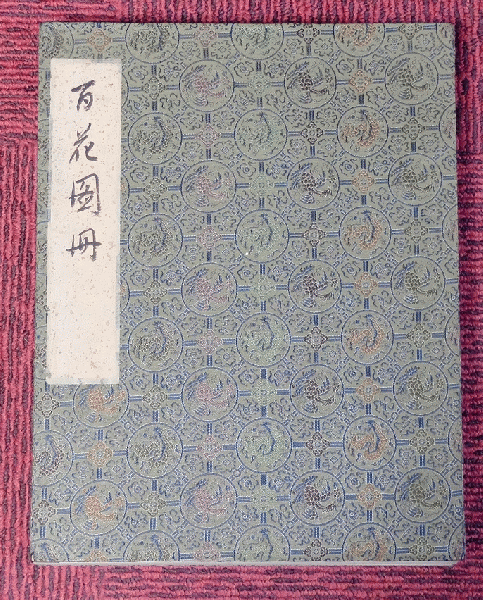 百花圖冊